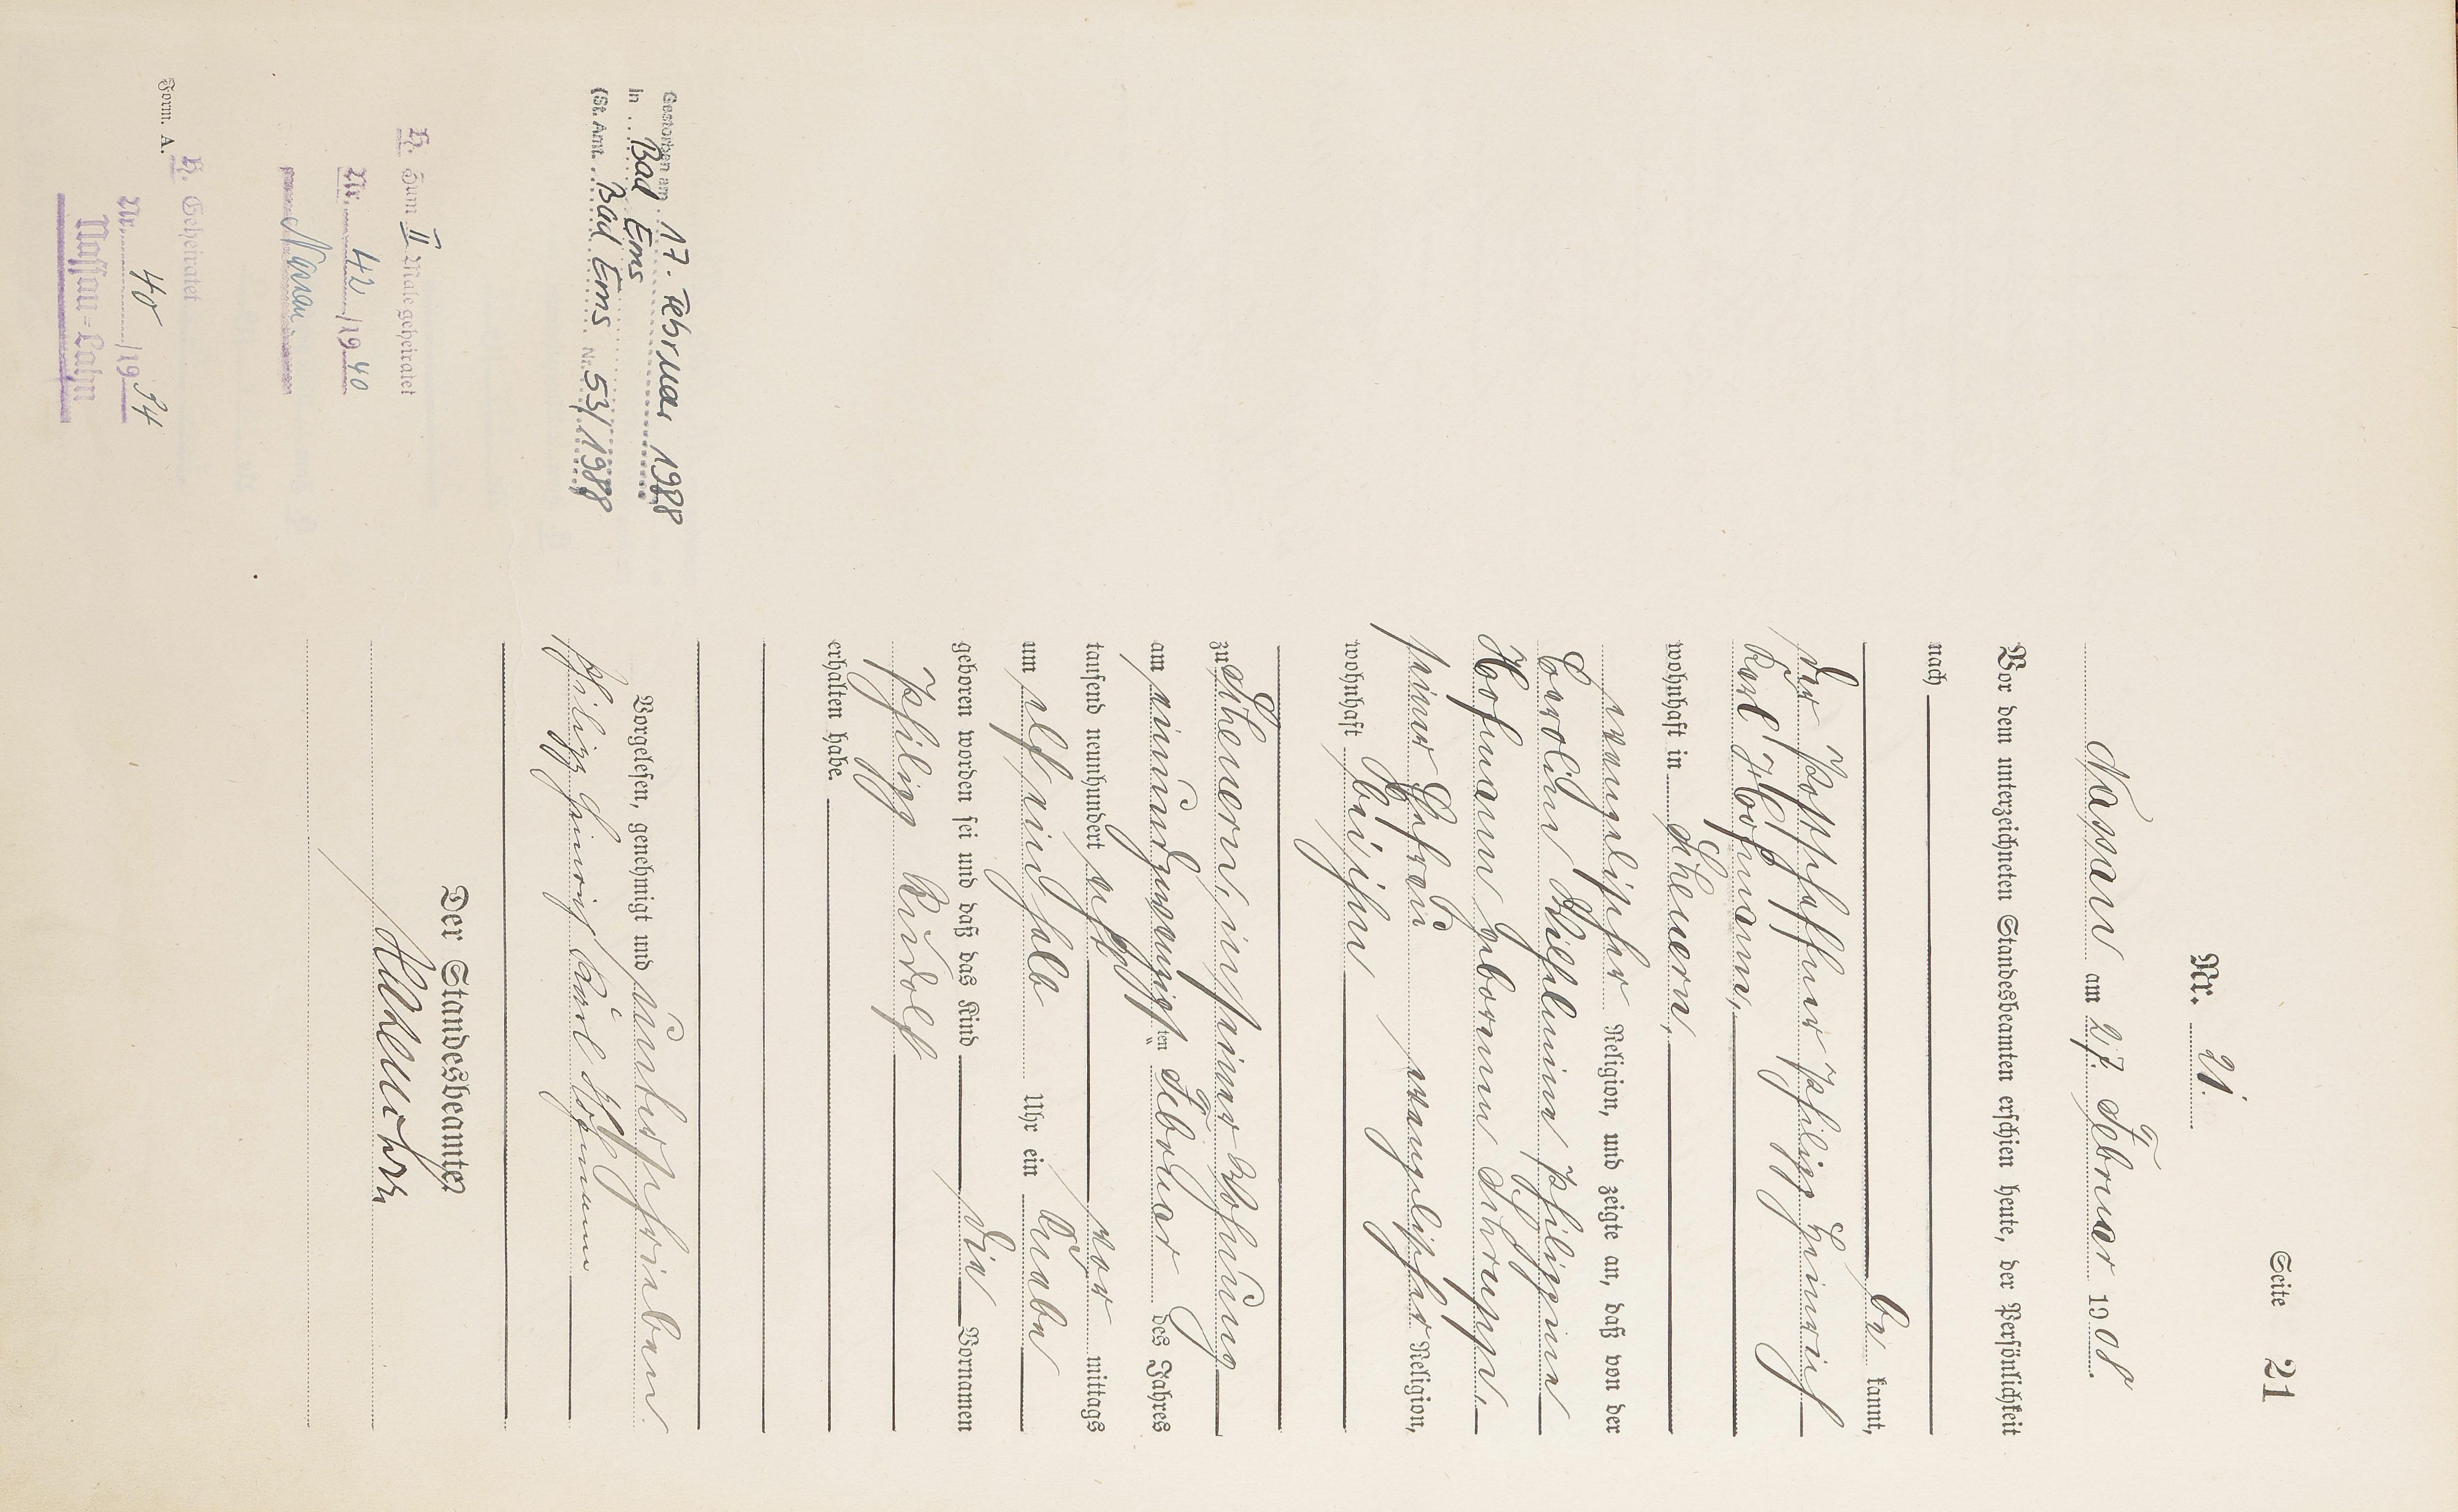 Seite 21
Nr. 21.
Nassau am 27. Februar 1908.
Vor dem unterzeichneten Standesbeamten erschien heute, der Persönlichkeit
nach
be kannt,
der Postschaffner Philipp Heinrich
Karl Hofmann,
wohnhaft in Scheuern,
evangelischer Religion, und zeigte an, daß von der
Caroline Wilhelmine Philippine
Hofmann geborenen Schrupp,
seiner Ehefrau evangelischer Religion,
wohnhaft bei ihm
zu Scheuern, in seiner Wohnung
am einundzwanzigsten Februar des Jahres
tausend neunhundert acht vor mittags
um elf einhalb Uhr ein Knabe
geboren worden sei und daß das Kind die Vornamen
Philipp Rudolf
erhalten habe.
Vorgelesen, genehmigt und unterschrieben.
Philipp Heinrich Karl Hofmann
Der Standesbeamte
Gestorben am 17. Februar 1988
in Bad Ems
(St. Amt. Bad Ems Nr. 53/1988
H. Zum II Male geheiratet
Nr. 42/1940
Nassau.
H. Geheiratet
Nr. 40/1934
Nassau=Lahn
Form. A.